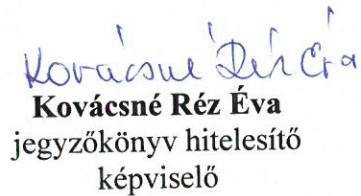 Kovácsné Réz Éva
Kovácsné Réz Éva
jegyzőkönyv hitelesítő
képviselő